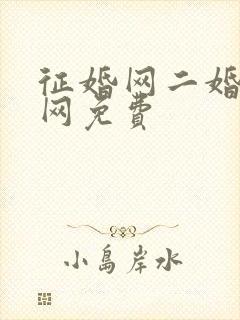 征婚网二婚
网免费
小岛岸水